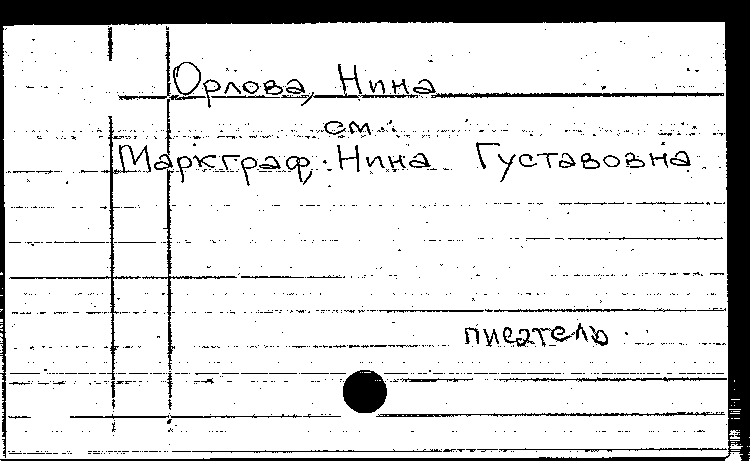 Орлова, Нина
см.
Маркграф, Нина Густавовна
писатель